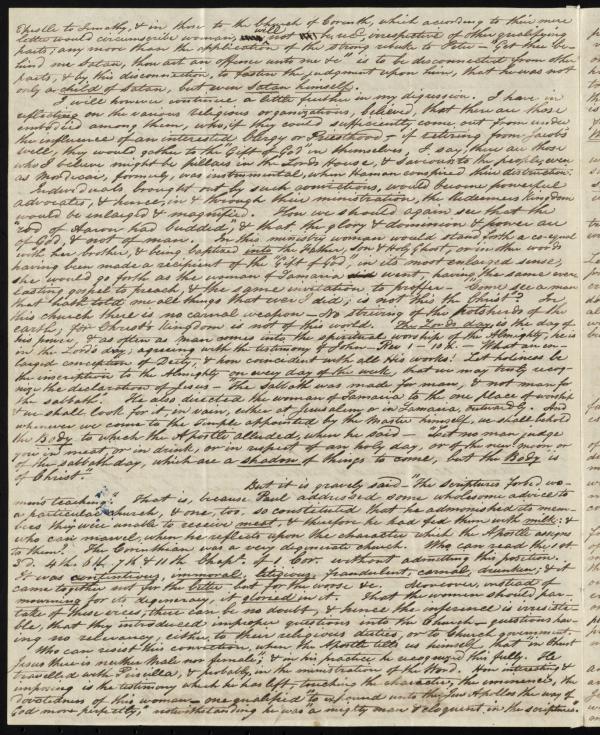 Epistle to Timothy, & in those to the Church of Corinth, which according to this mere
letter would circumscribe woman, will not be used, irrespective of other qualifying
parts; any more than the application of the strong rebuke to Peter – "Get thee be-
hind me Satan, thou art an offence unto me &c" is to be disconnected from other
parts, & by this disconnection, to fasten the judgment upon him, that he was not
only a child of Satan, but even Satan himself.
I will however continue a little further in my digression. I have in
reflecting on the various religious organizations, believed, that there are those
embodied among them, who, if they could sufficiently come out from under
the influence of an interested Clergy or Priesthood – if retiring from Jacob's
well, they would gather to the "Gift of God" in themselves, I say, there are those
who I believe might be pillars in the Lord's House, & Saviours to the people, even
as Mordecai, formerly, was instrumental, when Haman conspired their destruction.
Individuals, brought out by such convictions, would become powerful
advocates, & hence, in & through their ministration, the Redeemers Kingdom
would be enlarged & magnified. How we should again see that the
"rod of Aaron had budded," & that the glory & dominion & power are
of God, & not of man. In this ministry woman would stand forth a co-equal
with her brother, & being baptized into the Father, Son & Holy Ghost, or in other words
having been made a recipient of the "Gift of God", in its most enlarged sense,
she would go forth as the woman of Samaria went, having the same ever
lasting gospel to preach, & the same invitation to proffer – Come see a man
that hath told me all things that ever I did; is not this the Christ? In
this church there is no carnal weapon – No striving of the potsherds of the
earth; for Christ's Kingdom is not of this world. The Lord's day, is the day of
his power, & as often as man comes into the spiritual worship of the Almighty, he is
in the Lord's day; agreeing with the testimony of John – Rev. 1 – 10. What an en-
larged conception of Deity, & how coincident with all His works! Let holiness be
the inscription to the Almighty on every day of the week, that we may truly recog-
nize the declaration of Jesus – "The Sabbath was made for man, & not man for
the Sabbath." He also directed the woman of Samaria to the one place of worship
& we shall look for it, in vain, either at Jerusalem, or in Samaria, outwardly. And
whenever we come to the Temple appointed by the Master himself, we shall behold
the Body to which the Apostle alluded, when he said – "Let no man judge
you in meat, or in drink, or in respect of an holy day, or of the new moon or
of the sabbath day, which are a shadow of things to come, but the Body is
of Christ."
But it is gravely said – "the Scriptures forbid wo-
man's teaching." That is, because Paul addressed some wholesome advice to
a particular church, & one, too, so constituted that he admonished its mem-
bers they were unable to receive meat, & therefore he had fed them with milk: &
who can marvel, when he reflects upon the character which the Apostle assigns
to them? The Corinthian was a very degenerate church. Who can read the 1st
3d. 4th. 5th. 6th. 7th & 11th Chapt. of 1. Cor. without admitting the position.
It was contentious, immoral, litigious, fraudulent, carnal, drunken; & it
came together not for the better but for the worse &c. Moreover, instead of
mourning for its degeneracy, it gloried in it. That the women should par-
take of these vices, there can be no doubt, & hence the inference is irresisti-
ble, that they introduced improper questions into the Church – questions hav-
ing no relevancy, either to their religious duties, or to Church government.
Who can resist this conviction, when the Apostle tells us himself, that in Christ
Jesus there is neither Male nor female; & in his practice he recognised this fully. He
travelled with Priscilla, & probably, in the ministration of the Word. How interesting &
imposing is the testimony which he has left, touching the character, the eminence, the
devotedness of this woman – one qualified "to expound unto this Jew Apollos the way of
God more perfectly," notwithstanding he was "a mighty man & eloquent in the scriptures."